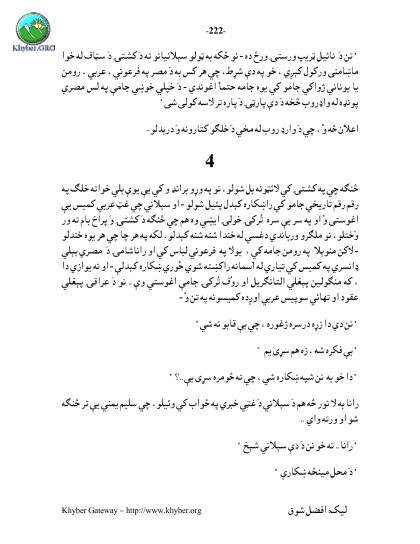 -222-
Khyber.ORG
" نن دَ نائيل ټرېپ ورستۍ ورځ ده - نو ځکه به ټولو سېلانيانو ته دَ کشتۍ دَ سټاف له خوا
ماښامنۍ ورکول کېږي ، خو په دې شرط، چې هر کس به دَ مصر په فرعوني ، عربي ، رومن
يا يوناني ژواکي جامو کې يوه جامه حتماً اغوندي - دَ خپلې خوښې جامې په لس مصري
پونډه له واډروب څخه دَ دې پارټۍ دَ پاره تر لاسه کولی شئ "
اعلان څه و ، چې دَ وارډ روب له مخې دَ خلګو کتارونه ودرېدلو-
4
څنګه چې په کشتۍ کې لائټونه بل شولو ، نو په ورو ورو برانډو کې يې يوې بلې خوا ته خلګ په
رقم رقم تاريخي جامو کې راښکاره کېدل پيل شولو - او سېلاني چې غټ عربي کميس يې
اغوستی و او په سر يې سره تُرکۍ خولۍ ايښې وه هم چې څنګه دَ کشتۍ وَ پراخ بام ته ور
وختلو ، نو ملګرو ورباندې دغسې له خندا شنه شنه کېدلو ، لکه په هر چا چې هر يوه خندلو
-لاکن منوېلا په رومن جامه کې ، يولا په فرعوني لباس کې او رانا شامي دَ مصري بېلې
ډانسرې په کميس کې تياري له آسمانه راکښته شوې حُورې ښکاره کېدلې - او نه يوازې دا
، که منګولين پېغلې التانګريل او روُف تُرکي جامې اغوستې وې - نو دَ عراقۍ پېغلې
عقود او تهائي سوېپس عربي اوږده کميسونه په تن و -
" نن دې دا زړه در سره ژغوره ، چې بې قابو نه شي "
" بې فکره شه ، زه هم سړی يم "
"دا خو به نن شپه ښکاره شي ، چې ته څومره سړی يې..؟ "
رانا به لا نور څه هم دَ سېلاني دَ غټې خبرې په ځواب کې وئيلو ، چې سليم يمني يې تر څنګه
شو او ورته وايي ..
" رانا .. ته خو نن دَ دې سېلاني شېخ "
" دَ محل مينځه ښکارې "
Khyber Gateway – http://www.khyber.org
ليک: افضل شوق